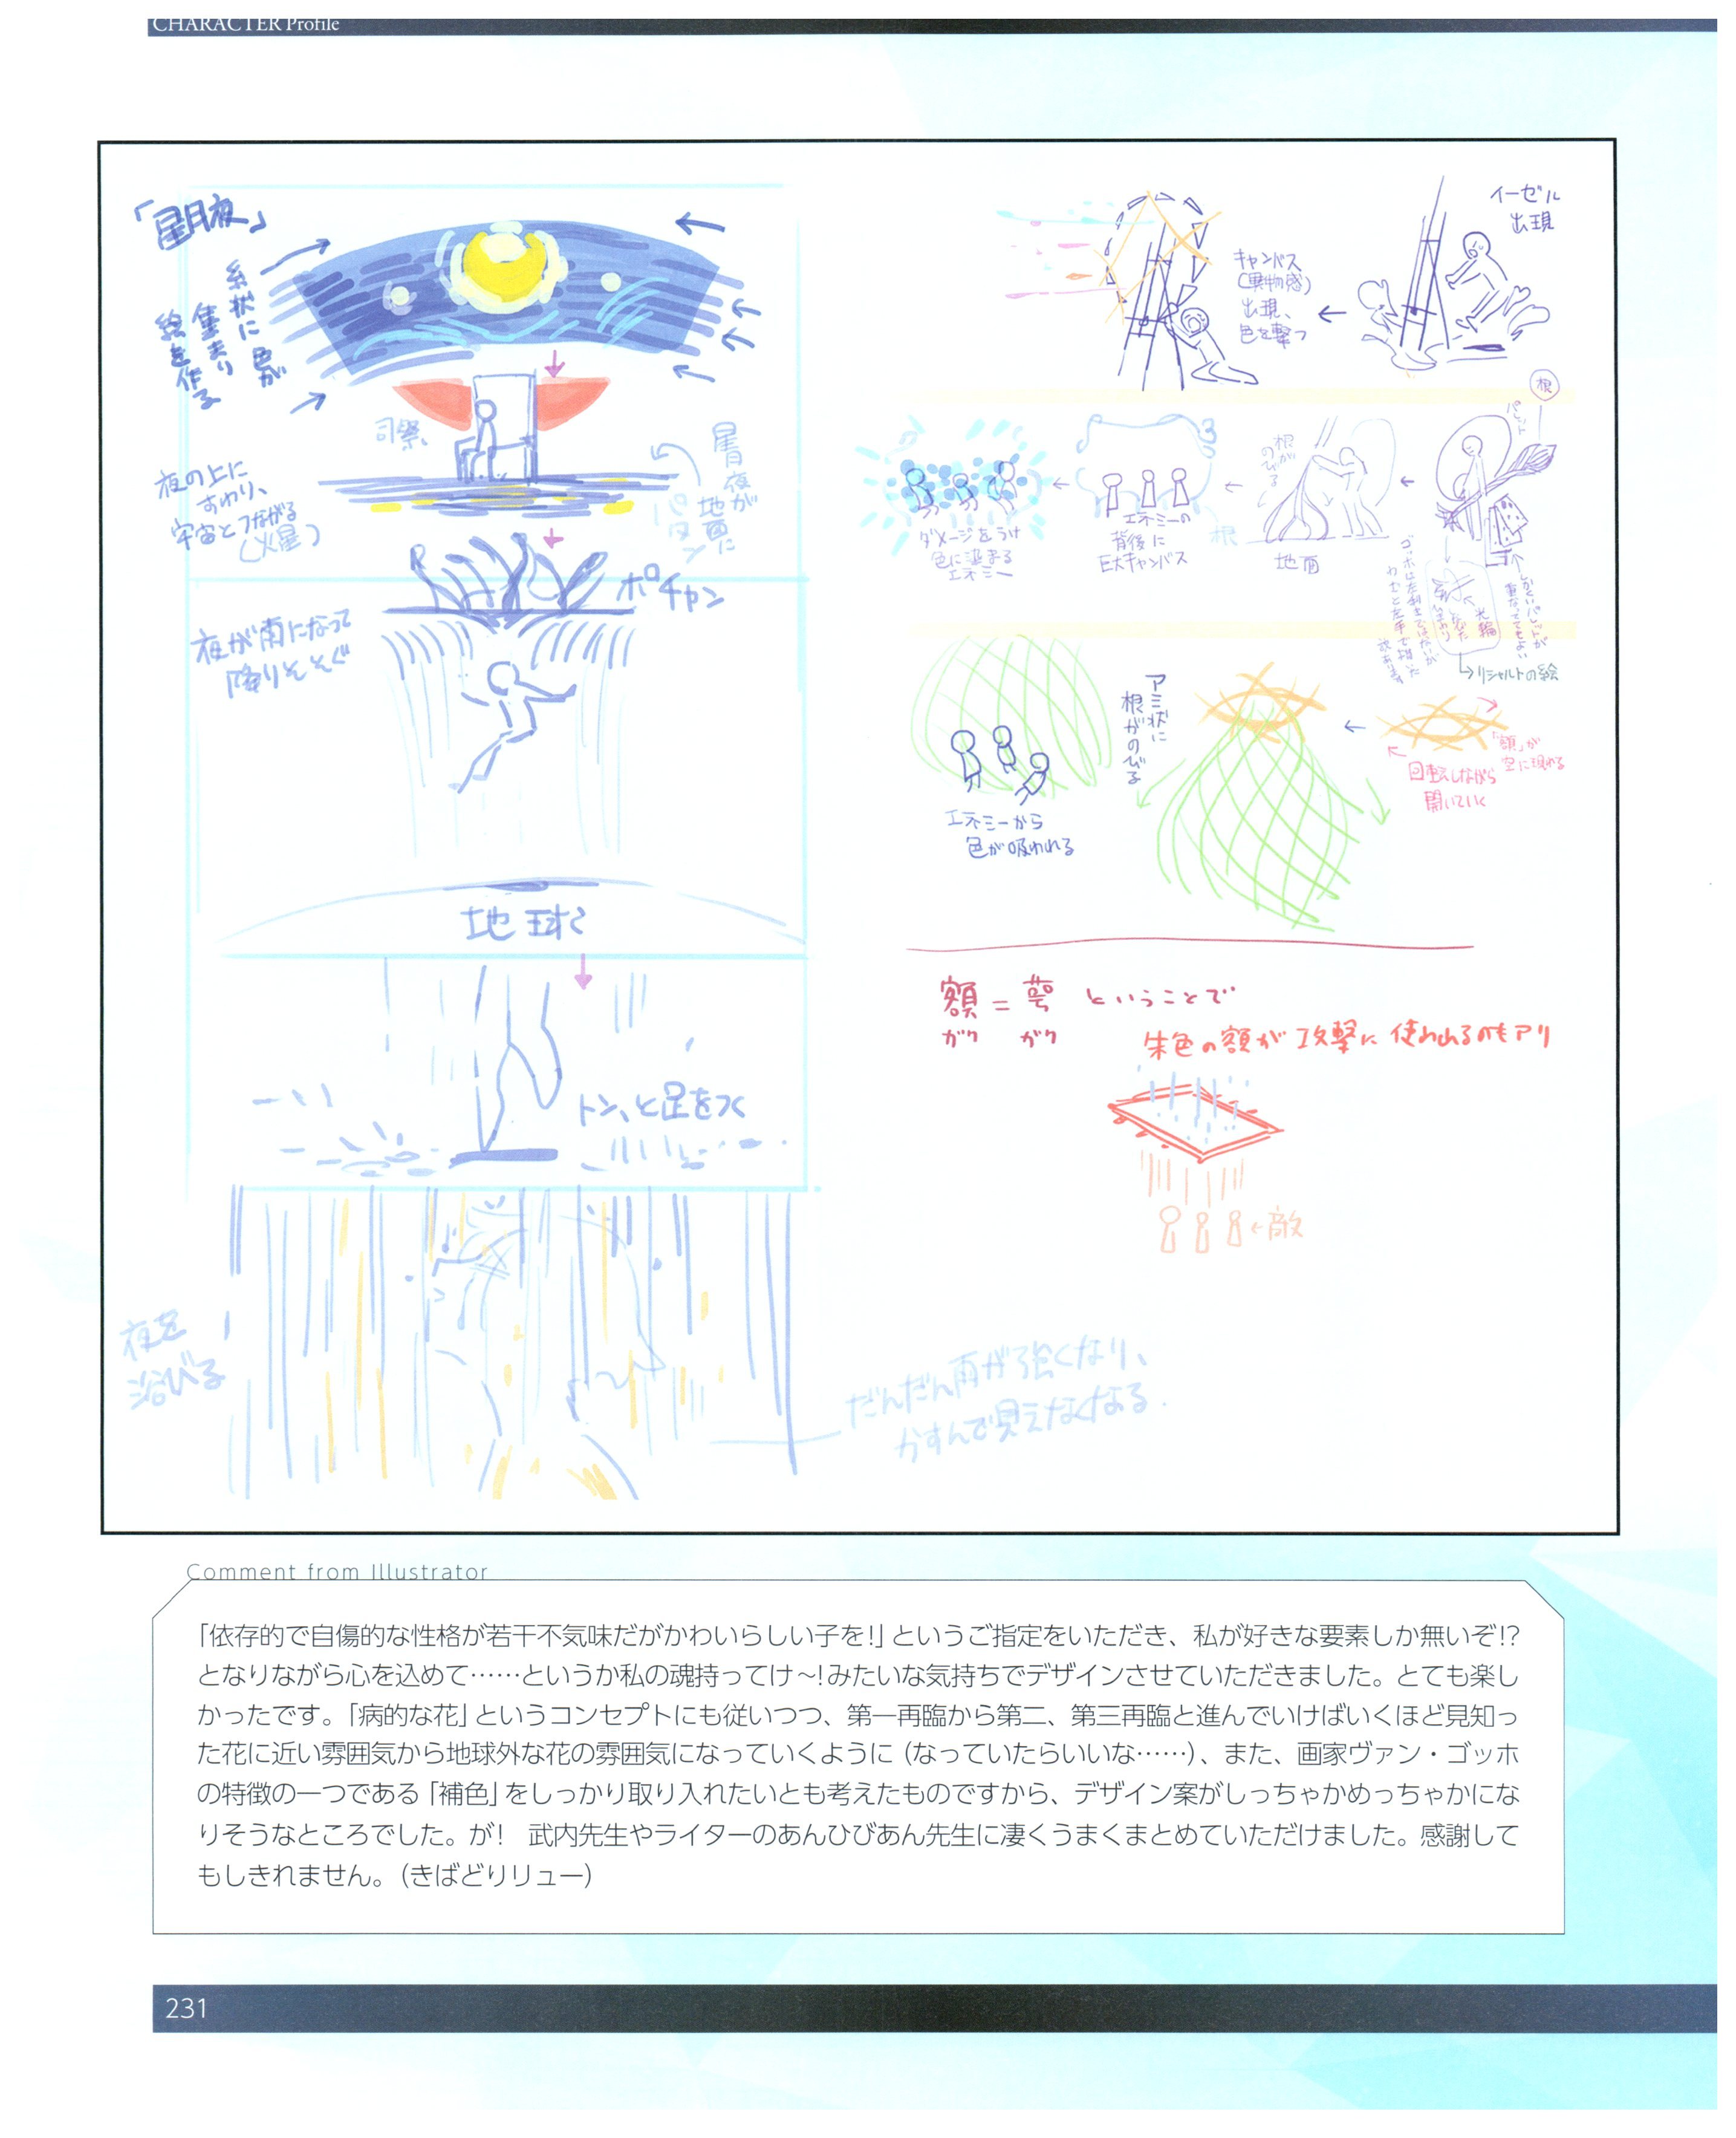 CHARACTER Profile
「星月夜」
糸状に色が
集まり
絵を作る
司祭
夜の上に
すわり、
宇宙とつながる
(火星)
星月夜が
地面に
パタン
ポチャン
夜が雨になって
降りそそぐ
地球
トン、と足をつく
夜を
浴びる
だんだん雨が強くなり、
かすんで見えなくなる.
イーゼル
出現
キャンバス
(異物感)
出現、
色を撃つ
根
パレット
根が
のびる
地面
エネミーの
背後に
巨大キャンバス
根
ダメージをうけ
色に染まる
エネミー
しかくいパレットが
重なっててもよい
光輪
リシャルトの絵
「額」が
空に現れる
回転しながら
開いていく
アミ状に
根がのびる
エネミーから
色が吸われる
額=萼 ということで
ガク ガク
朱色の額が攻撃に使われるのもアリ
←敵
Comment from Illustrator
「依存的で自傷的な性格が若干不気味だがかわいらしい子を!」というご指定をいただき、私が好きな要素しか無いぞ!?
となりながら心を込めて……というか私の魂持ってけ〜!みたいな気持ちでデザインさせていただきました。とても楽し
かったです。「病的な花」というコンセプトにも従いつつ、第一再臨から第二、第三再臨と進んでいけばいくほど見知っ
た花に近い雰囲気から地球外な花の雰囲気になっていくように(なっていたらいいな……)、また、画家ヴァン・ゴッホ
の特徴の一つである「補色」をしっかり取り入れたいとも考えたものですから、デザイン案がしっちゃかめっちゃかにな
りそうなところでした。が! 武内先生やライターのあんひびあん先生に凄くうまくまとめていただけました。感謝して
もしきれません。(きばどりリュー)
231